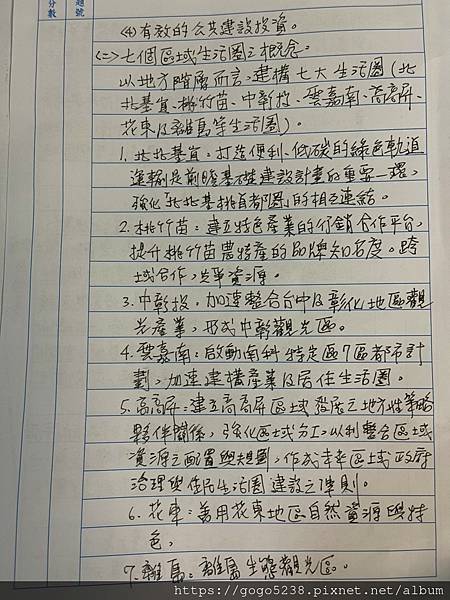 分數
題號
(4)有效的公共建設投資。
(二)七個區域生活圈之概念:
以地方階層而言,建構七大生活圈(北
北基宜、桃竹苗、中彰投、雲嘉南、高高屏、
花東及離島等生活圈)。
1. 北北基宜:打造便利、低碳的綠色軌道
運輸是前瞻基礎建設計畫的重要一環,
強化「北北基桃首都圈」的相互連結。
2. 桃竹苗:建立特色產業的行銷合作平台,
提升桃竹苗農特產的品牌知名度。跨
域合作,共享資源。
3. 中彰投:加速整合台中及彰化地區觀
光產業,形成中彰觀光區。
4. 雲嘉南:啟動南科特定區7區都市計
劃,加速建構產業及居住生活圈。
5. 高高屏:建立高高屏區域發展之地方性策略
夥伴關係,強化區域分工,以利整合區域
資源之配置與規劃,作成幸幸區域政府
治理與住民生活圈建設之準則。
6. 花東:善用花東地區自然資源與特
色。
7. 離島:離島生態觀光區。
https://gogo5238.pixnet.net/album